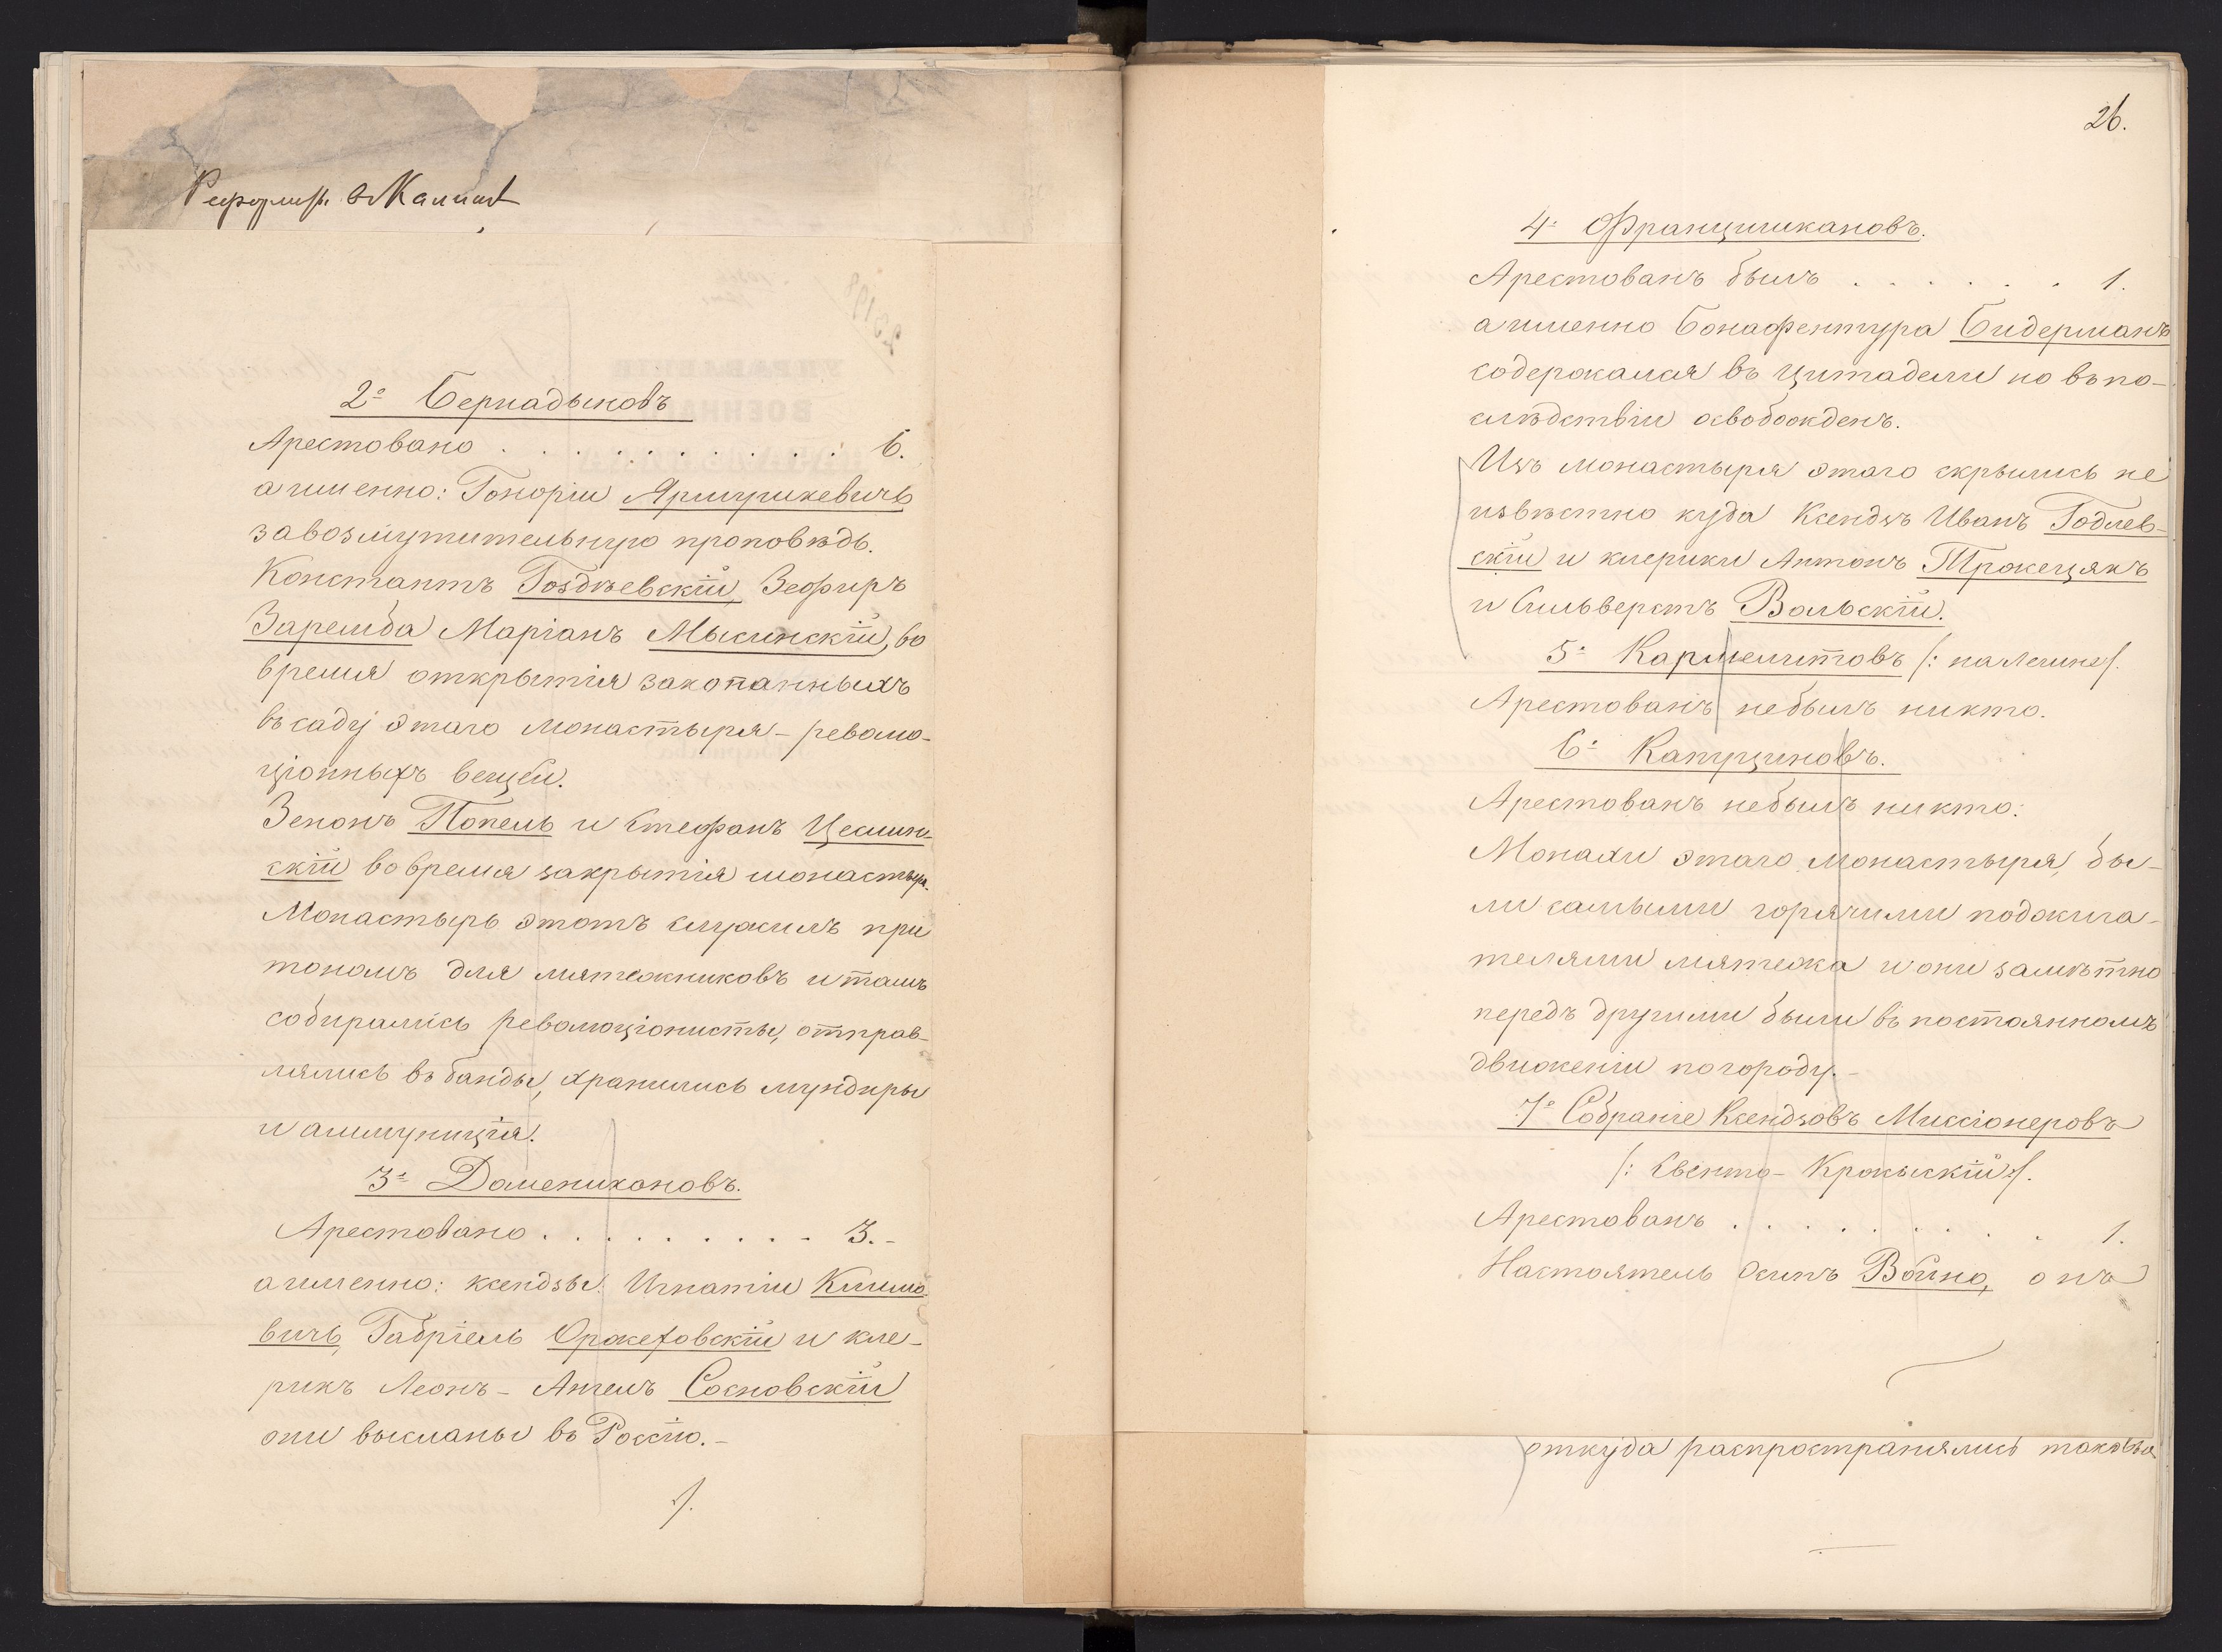 Реформ. в Калиш
2º Бернадыновъ
Арестовано . . . . . . . . . . . . 6.
а именно: Гонорiи Ярмушкевичъ
за возмутительную проповѣдь.
Константъ Гоздѣевскiй, Зефиръ
Заремба Марiанъ Мысинскiй, во
время открытiя закопанныхъ
въ саду этаго монастыря – револю-
цiонныхъ вещей.
Зенонъ Попель и Стефанъ Цесмин-
скiй во время закрытiя монастыря.
Монастырь этотъ служилъ при
тономъ для мятежниковъ и тамъ
собирались революцiонисты, отправ-
лялись въ банды, хранились мундиры
и аммуницiя.
3º Доминикановъ.
Арестовано . . . . . . . . . . 3.-
а именно: ксендзы: Игнатiи Климо
вичъ, Габрiель Оржеховскiй и кле-
рикъ Леонъ – Ангелъ Сосновскiй
они высланы въ Россiю. –
26.
4º Францишкановъ.
Арестованъ былъ . . . . . . 1.
а именно Бонафентура Бидерманъ
содержался въ цитадели но въ по-
слѣдствiи освобожденъ.
Изъ монастыря этаго скрылись не
извѣстно куда Ксендзъ Иванъ Годлев-
скiй и клерики Антонъ Трокецякъ
и Сильверстъ Вольскiй.
5º Кармелитовъ /: на Лешне /.
Арестованъ небылъ никто.
6º Капуциновъ.
Арестованъ небылъ никто:
Монахи этаго монастыря, бы-
ли самыми горячими поджига-
телями мятежа и они замѣтно
передъ другими были въ постоянномъ
движенiи по городу. –
7º Собранiе Ксендзовъ Миссiонеровъ
/: Свенто – Крыжскiй /.
Арестованъ . . . . . . . . . 1.
Настоятель Осипъ Война, онъ
откуда распространялись таковыя